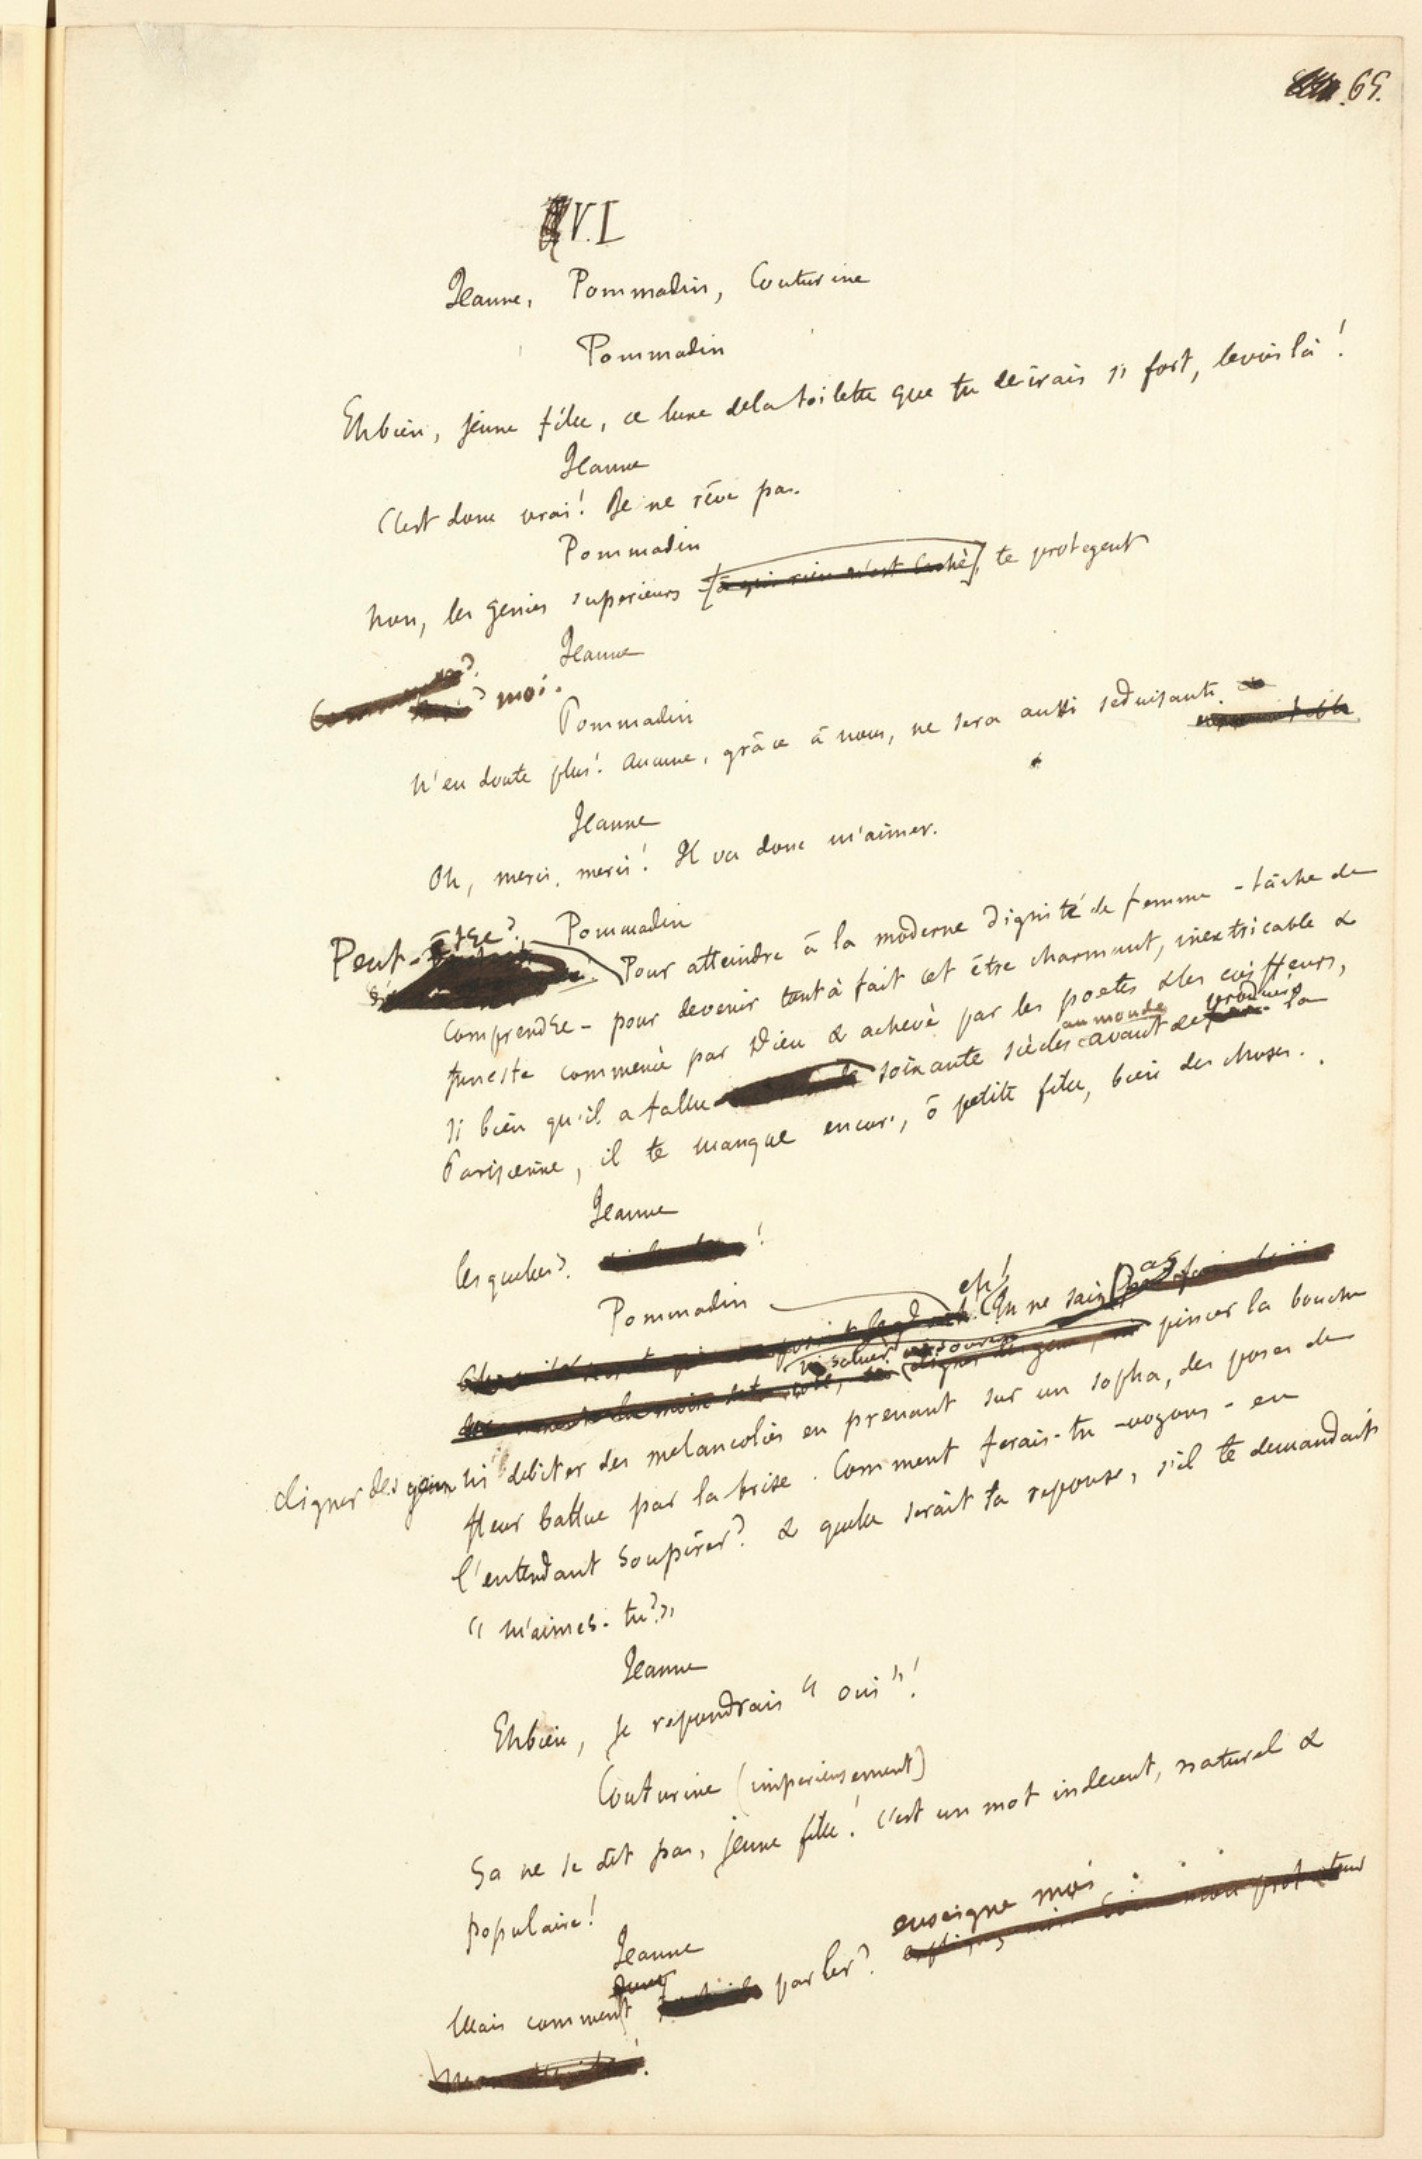 65.
VI
Jeanne, Pommadin, Couturine
Pommadin
Ehbien, jeune fille, ce luxe dela toilette que tu desirais si fort, levoilà!
Jeanne
C'est donc vrai! Je ne rêve pas.
Pommadin
Non, les genies superieurs à qui rien n'est caché, te protegent
Jeanne
moi.
Pommadin
N'en doute plus! Aucune, grâce à nous, ne sera aussi seduisante.
Jeanne
Oh, merci, merci! Il va donc m'aimer.
Pommadin
Peut-être? Pour atteindre à la moderne dignité de femme - tâche de
comprendre - pour devenir toutàfait cet être charmant, inextricable &
funeste commencé par Dieu & achevé par les poetes &les coiffeurs,
si bien qu'il a fallu soixante siècles avant de produire au monde la
Parisienne, il te manque encor, ô petite fille, bien des choses.
Jeanne
lesquelles?
Pommadin
eh! Tu ne sais pas
ni saluer, ni sourire pincer la bouche
cligner des yeux ni debiter des melancolies en prenant sur un sopha, des poses de
fleur battue par la brise. Comment ferais-tu -voyons- en
l'entendant soupirer? & quelle serait ta reponse, s'il te demandait
"M'aimes-tu?"
Jeanne
Ehbien, je repondrais "oui"!
Couturine (imperieusement)
Ça ne se dit pas, jeune fille! C'est un mot indecent, naturel &
populaire!
Jeanne
Mais comment parler? enseigne moi